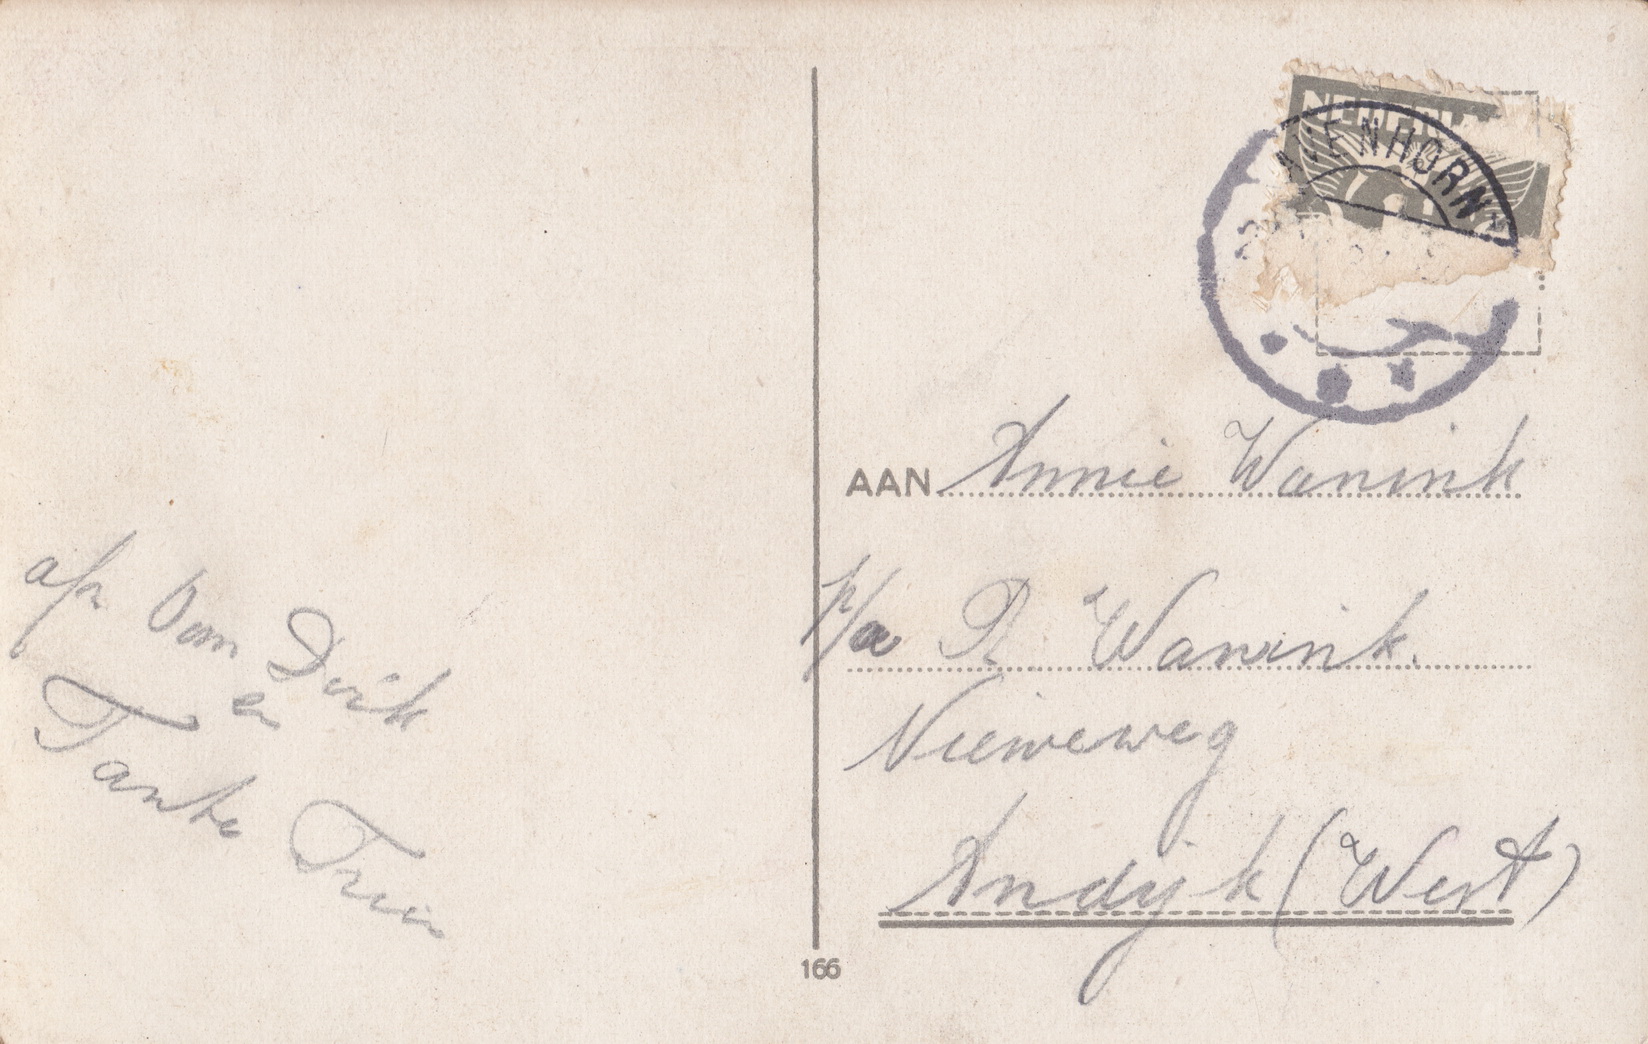 afz Oom Dirk
en
Tante Trien
AAN Annie Wanink
p/a R. Wanink.
Nieuweweg
Andijk (West)
166